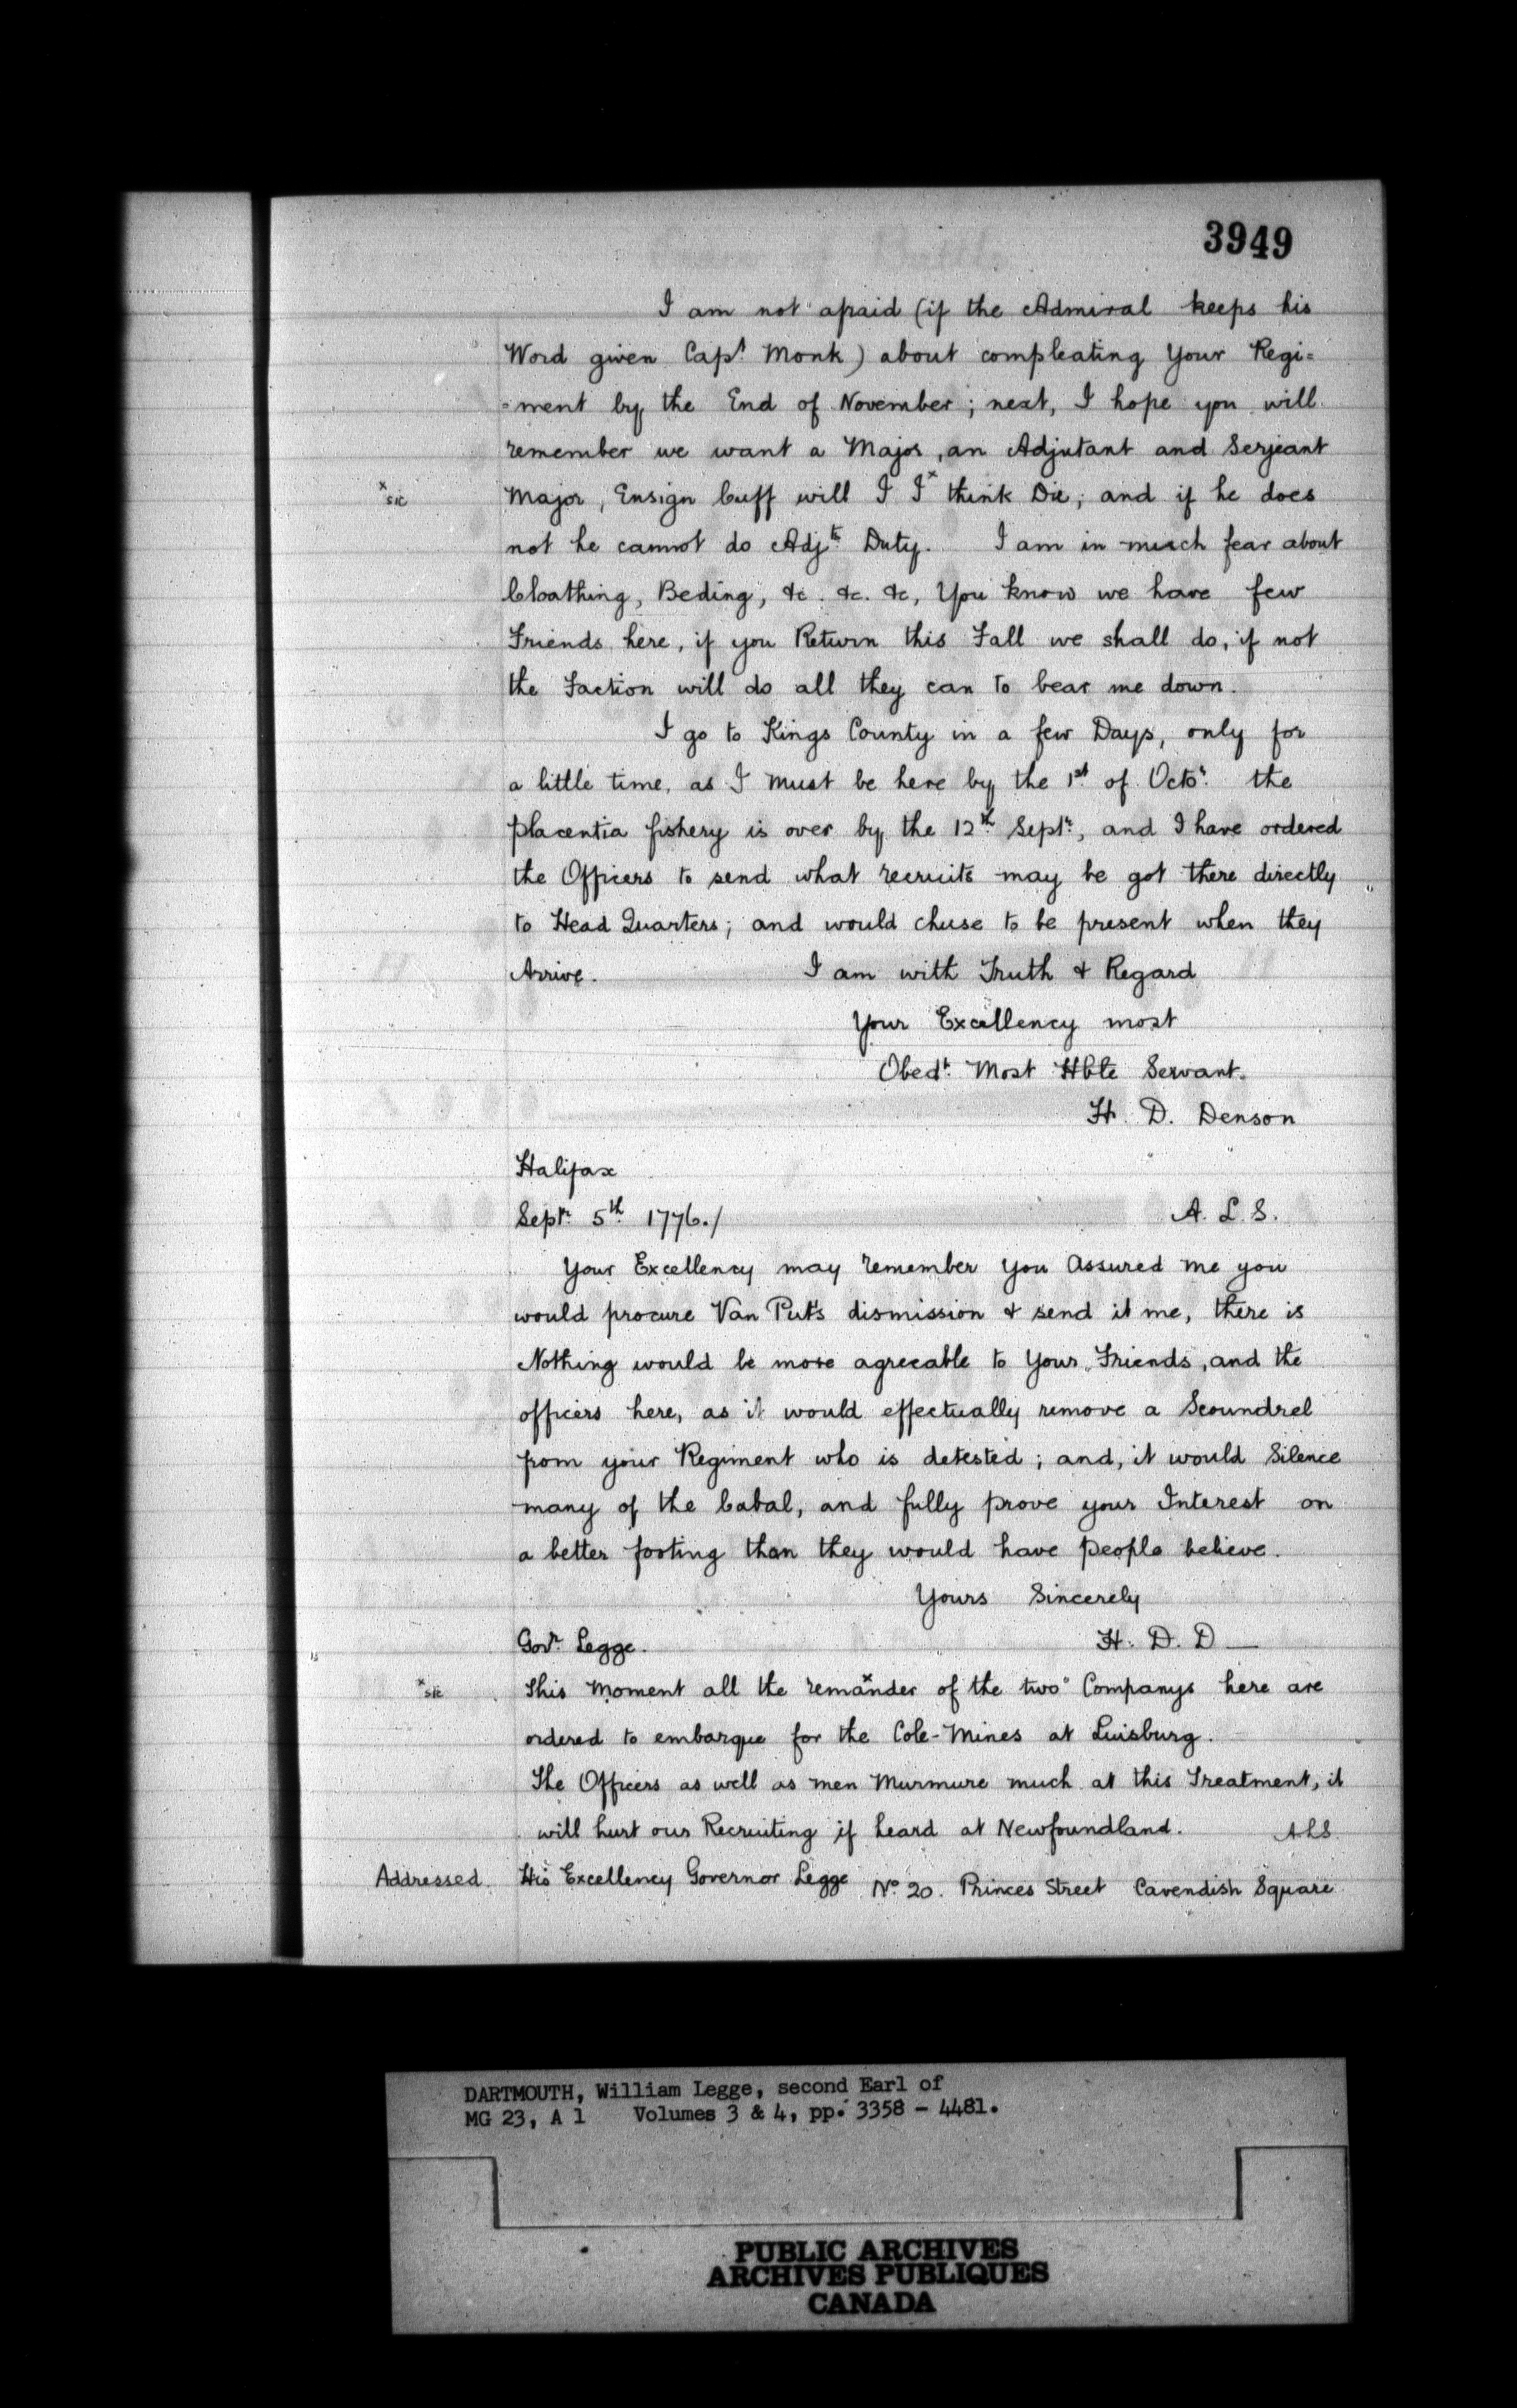 3949
I am not afraid (if the Admiral keeps his
Word given Capt. Monk) about compleating Your Regi=
=ment by the End of November; next, I hope you will
remember we want a Major, an Adjutant and Serjeant
x sic Major, Ensign Cuff will I I x think Die, and if he does
not he cannot do Adjts. Duty. I am in much fear about
Cloathing, Beding, &c. &c. &c, You know we have few
Friends here, if you Return this Fall we shall do, if not
the Faction will do all they can to bear me down.
I go to Kings County in a few Days, only for
a little time, as I must be here by the 1st. of Octor. the
placentia fishery is over by the 12th. Septr., and I have ordered
the Officers to send what recruits may be got there directly
to Head Quarters; and would chuse to be present when they
Arrive. I am with Truth & Regard
Your Excellency most
Obedt. Most Hble Servant.
H. D. Denson
Halifax
Septr. 5th. 1776./ A. L. S.
Your Excellency may remember you Assured me you
would procure Van Put's dismission & send it me, there is
Nothing would be more agreeable to Your Friends, and the
officers here, as it would effectually remove a Scoundrel
from your Regiment who is detested; and, it would Silence
many of the Cabal, and fully prove your Interest on
a better footing than they would have people believe.
Yours Sincerely
Govr. Legge. H. D. D—
x sic This Moment all the remaxnder of the two Companys here are
ordered to embarque for the Cole-Mines at Luisburg.
The Officers as well as men Murmure much at this Treatment, it
will hurt our Recruiting if heard at Newfoundland. ALS.
Addressed. His Excellency Governor Legge No. 20. Princes Street Cavendish Square
DARTMOUTH, William Legge, second Earl of
MG 23, A 1 Volumes 3 & 4, pp. 3358 - 4481.
PUBLIC ARCHIVES
ARCHIVES PUBLIQUES
CANADA